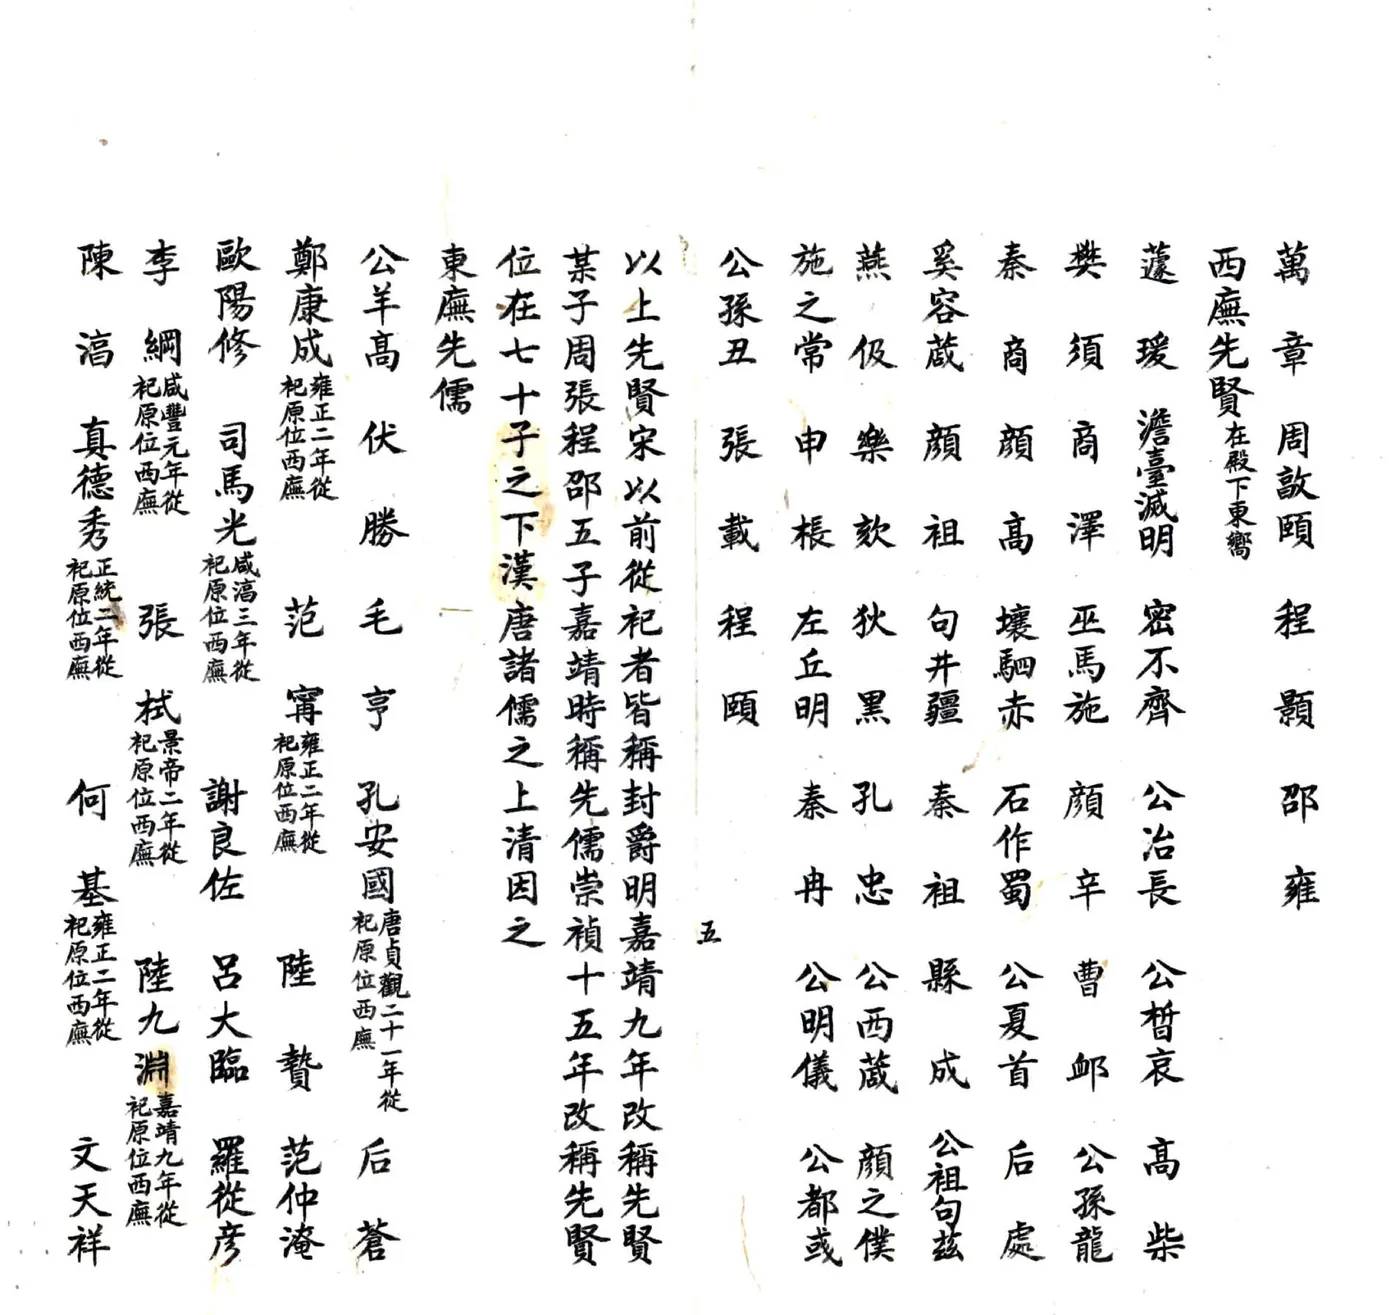 萬章 周敦頤 程顥 邵雍
西廡先賢在殿下東嚮
蘧瑗 澹臺滅明 宓不齊 公冶長 公晳哀 高柴
樊須 商澤 巫馬施 顔辛 曹卹 公孫龍
秦商 顔高 壤駟赤 石作蜀 公夏首 后處
奚容蒧 顔祖 句井疆 秦祖 縣成 公祖句玆
燕伋 樂欬 狄黑 孔忠 公西蒧 顔之僕
施之常 申棖 左丘明 秦冉 公明儀 公都或
公孫丑 張載 程頤
五
以上先賢宋以前從祀者皆稱封爵明嘉靖九年改稱先賢
某子周張程邵五子嘉靖時稱先儒崇禎十五年改稱先賢
位在七十子之下漢唐諸儒之上清因之
東廡先儒
公羊高 伏勝 毛亨 孔安國唐貞觀二十一年從祀原位西廡 后蒼
鄭康成雍正二年從祀原位西廡 范甯雍正二年從祀原位西廡 陸贄 范仲淹
歐陽修 司馬光咸淳三年從祀原位西廡 謝良佐 呂大臨 羅從彦
李綱咸豐元年從祀原位西廡 張栻景帝二年從祀原位西廡 陸九淵嘉靖九年從祀原位西廡
陳淳 真德秀正統二年從祀原位西廡 何基雍正二年從祀原位西廡 文天祥